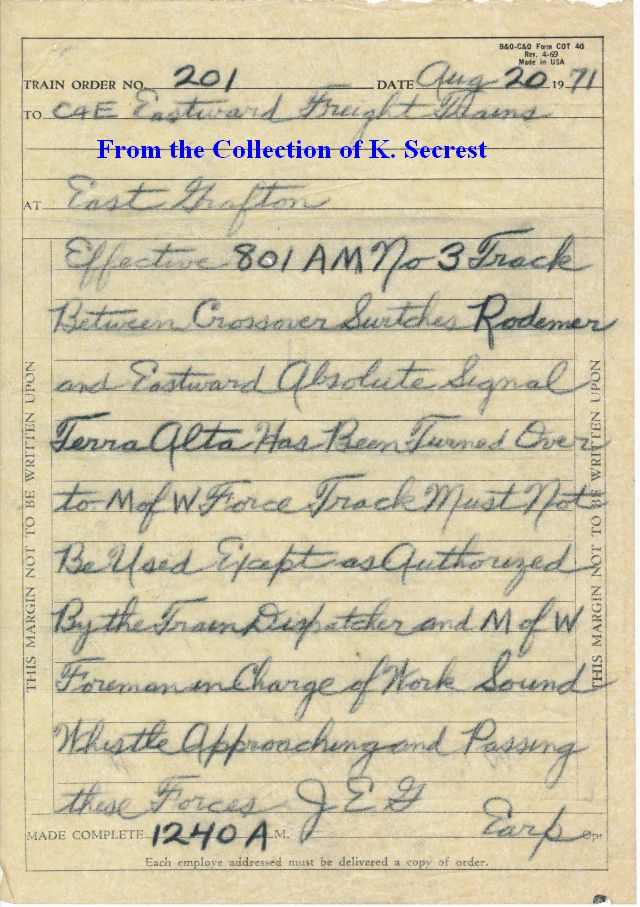 B&O-C&O Form COT 40
Rev. 4-69
Made in USA
TRAIN ORDER NO. 201 DATE Aug 20 1971
TO C&E Eastward Freight Trains
From the Collection of K. Secrest
AT East Grafton
Effective 801 AM No 3 Track
Between Crossover Switches Rodemer
and Eastward Absolute Signal
Terra Alta Has Been Turned Over
to M of W Force Track Must Not
Be Used Except as Authorized
By the Train Dispatcher and M of W
Foreman in Charge of Work Sound
Whistle Approaching and Passing
these Forces J E G
MADE COMPLETE 1240 A M. Earp Opr
Each employe addressed must be delivered a copy of order.
THIS MARGIN NOT TO BE WRITTEN UPON
THIS MARGIN NOT TO BE WRITTEN UPON